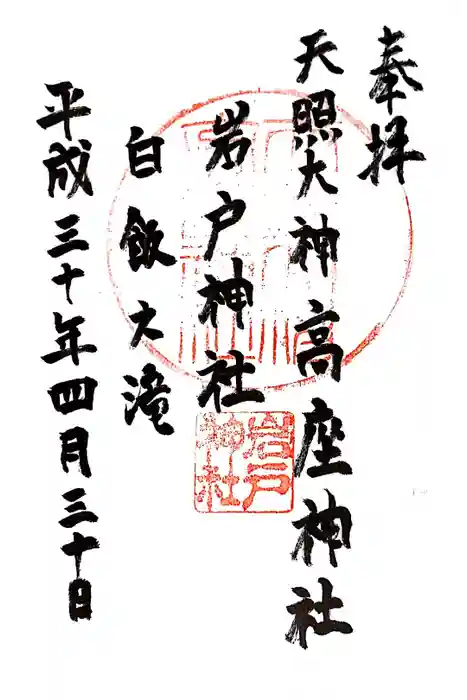 奉拝
天照大神高座神社
岩戸神社
白飯之滝
平成三十年四月三十日
岩戸
神社